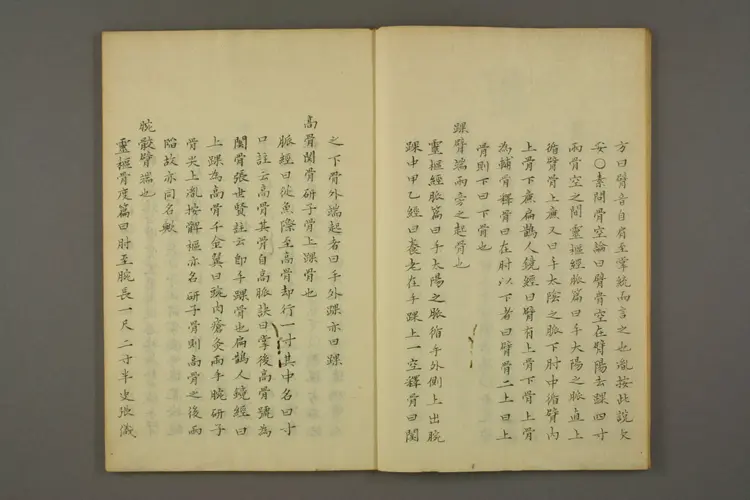 方曰臂音自有至掌統而言之也胤按此説欠
妥○素問骨空論曰臂骨空在臂陽去踝四寸
兩骨空之間靈樞經脈篇曰手大陽之脈直上
循臂骨上廉又曰手太陰之脈下肘中循臂内
上骨下廉扁鵲人鏡經曰臂有上骨下骨上骨
為輔骨釋骨曰在肘以下者曰臂骨二上曰上
骨則下曰下骨也
踝臂端兩旁之起骨也
靈樞經脈篇曰手太陽之脈循手外側上出腕
踝中甲乙經曰養老在手踝上一空釋骨曰関
之下骨外端起者曰手外踝亦曰踝
高骨関骨研子骨上踝骨也
脈經曰從魚際至高骨却行一寸其中名曰寸
口註云高骨其骨自高脈訣曰掌後高骨號為
関骨張世賢註云即手踝骨也扁鵲人鏡經曰
上踝為高骨千金翼曰腕内瘡灸兩手腕研子
骨尖上胤按觧樞亦名研子骨則高骨之後而
陷故亦同名歟
腕骹臂端也
靈樞骨度篇曰肘至腕長一尺二寸半史張儀